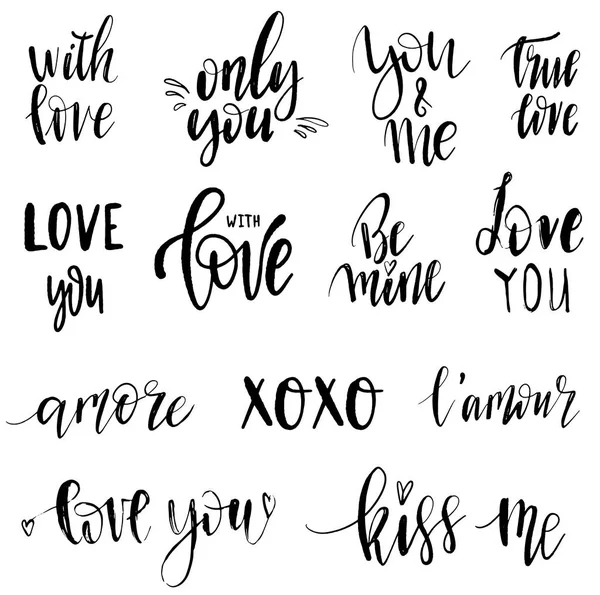 with
love
only
you
you
&
me
true
love
LOVE
you
WITH
love
Be
mine
Love
YOU
amore
XOXO
l'amour
love you
kiss me